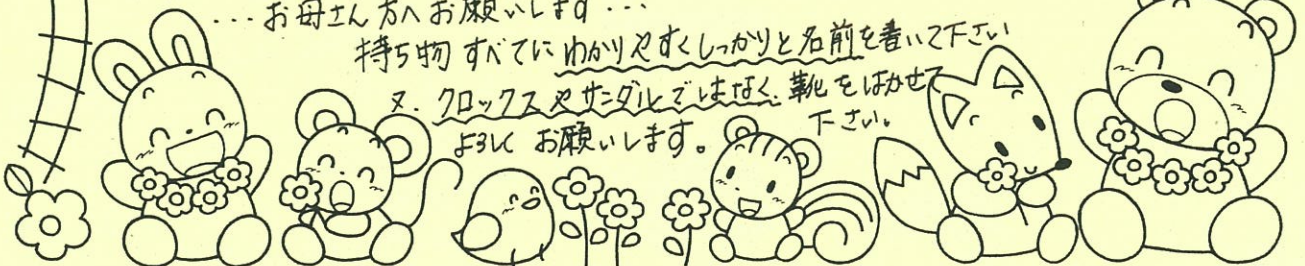 ...お母さん方へお願いします...
持ち物すべてにわかりやすくしっかりと名前を書いて下さい
又、クロックスやサンダルではなく、靴をはかせて
下さい。
よろしくお願いします。